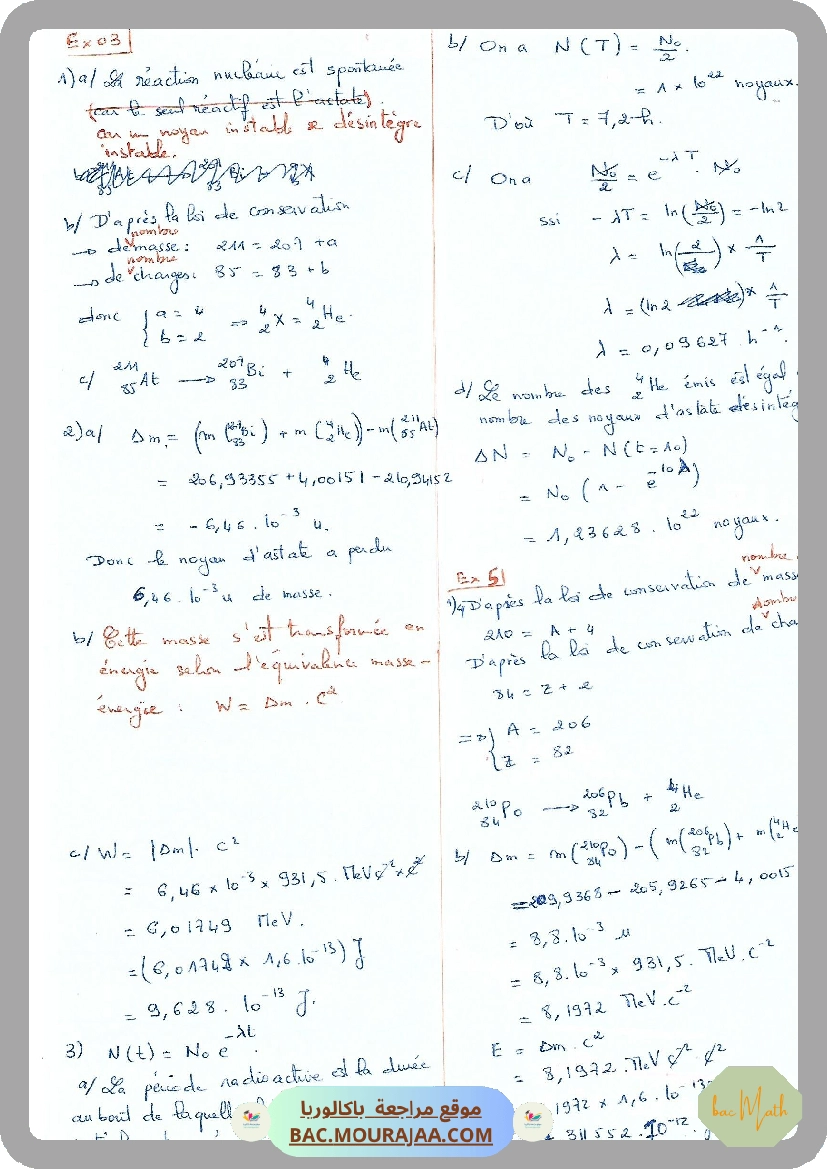 Ex 03
1) a/ La réaction nucléaire est spontanée
(car le seul réactif est l'astate).
car un noyau instable se désintègre
instable.
b/ D'après la loi de conservation
nombre
→ de masse : 211 = 207 + a
nombre
→ de charges : 85 = 83 + b
donc { a = 4
b = 2 ⇒ ⁴₂X = ⁴₂He.
c/ ²¹¹₈₅At → ²⁰⁷₈₃Bi + ⁴₂He
2) a/ Δm = (m(²⁰⁷₈₃Bi) + m(⁴₂He)) - m(²¹¹₈₅At)
= 206,93355 + 4,00151 - 210,94152
= - 6,46 . 10⁻³ u.
Donc le noyau d'astate a perdu
6,46 . 10⁻³ u de masse.
b/ Cette masse s'est transformée en
énergie selon l'équivalence masse -
énergie : W = Δm . C²
c/ W = |Δm| . C²
= 6,46 × 10⁻³ × 931,5 . MeV C⁻² × C²
= 6,01749 MeV.
= (6,01749 × 1,6 . 10⁻¹³) J
= 9,628 . 10⁻¹³ J.
3) N(t) = N₀ e^-λt.
a/ La période radioactive est la durée
au bout de laquelle
b/ On a N(T) = N₀/2.
= 1 × 10²² noyaux.
D'où T = 7,2 h.
c/ On a N₀/2 = e^-λT . N₀
ssi - λT = ln(N₀/2) = - ln 2
λ = ln(2) × 1/T
λ = (ln 2) × 1/T
λ = 0,09627 h⁻¹.
d/ Le nombre des ⁴₂He émis est égal
nombre des noyaux d'astate désintég
ΔN = N₀ - N(t = 10)
= N₀ (1 - e^-10λ)
= 1,23628 . 10²² noyaux.
Ex 5
nombre
1) a/ D'après la loi de conservation de mass
nombre
210 = A + 4
D'après la loi de conservation de cha
84 = Z + 2
⇒ { A = 206
Z = 82
²¹⁰₈₄Po → ²⁰⁶₈₂Pb + ⁴₂He
b/ Δm = m(²¹⁰₈₄Po) - (m(²⁰⁶₈₂Pb) + m(⁴₂He
= 209,9368 - 205,9265 - 4,0015
= 8,8 . 10⁻³ u
= 8,8 . 10⁻³ × 931,5 . MeV . C⁻²
= 8,1972 MeV . C⁻²
E = Δm . C²
= 8,1972 . MeV C⁻² . C²
1972 × 1,6 . 10⁻¹³
311552 . 10⁻¹²
موقع مراجعة باكالوريا
BAC.MOURAJAA.COM
bac Math